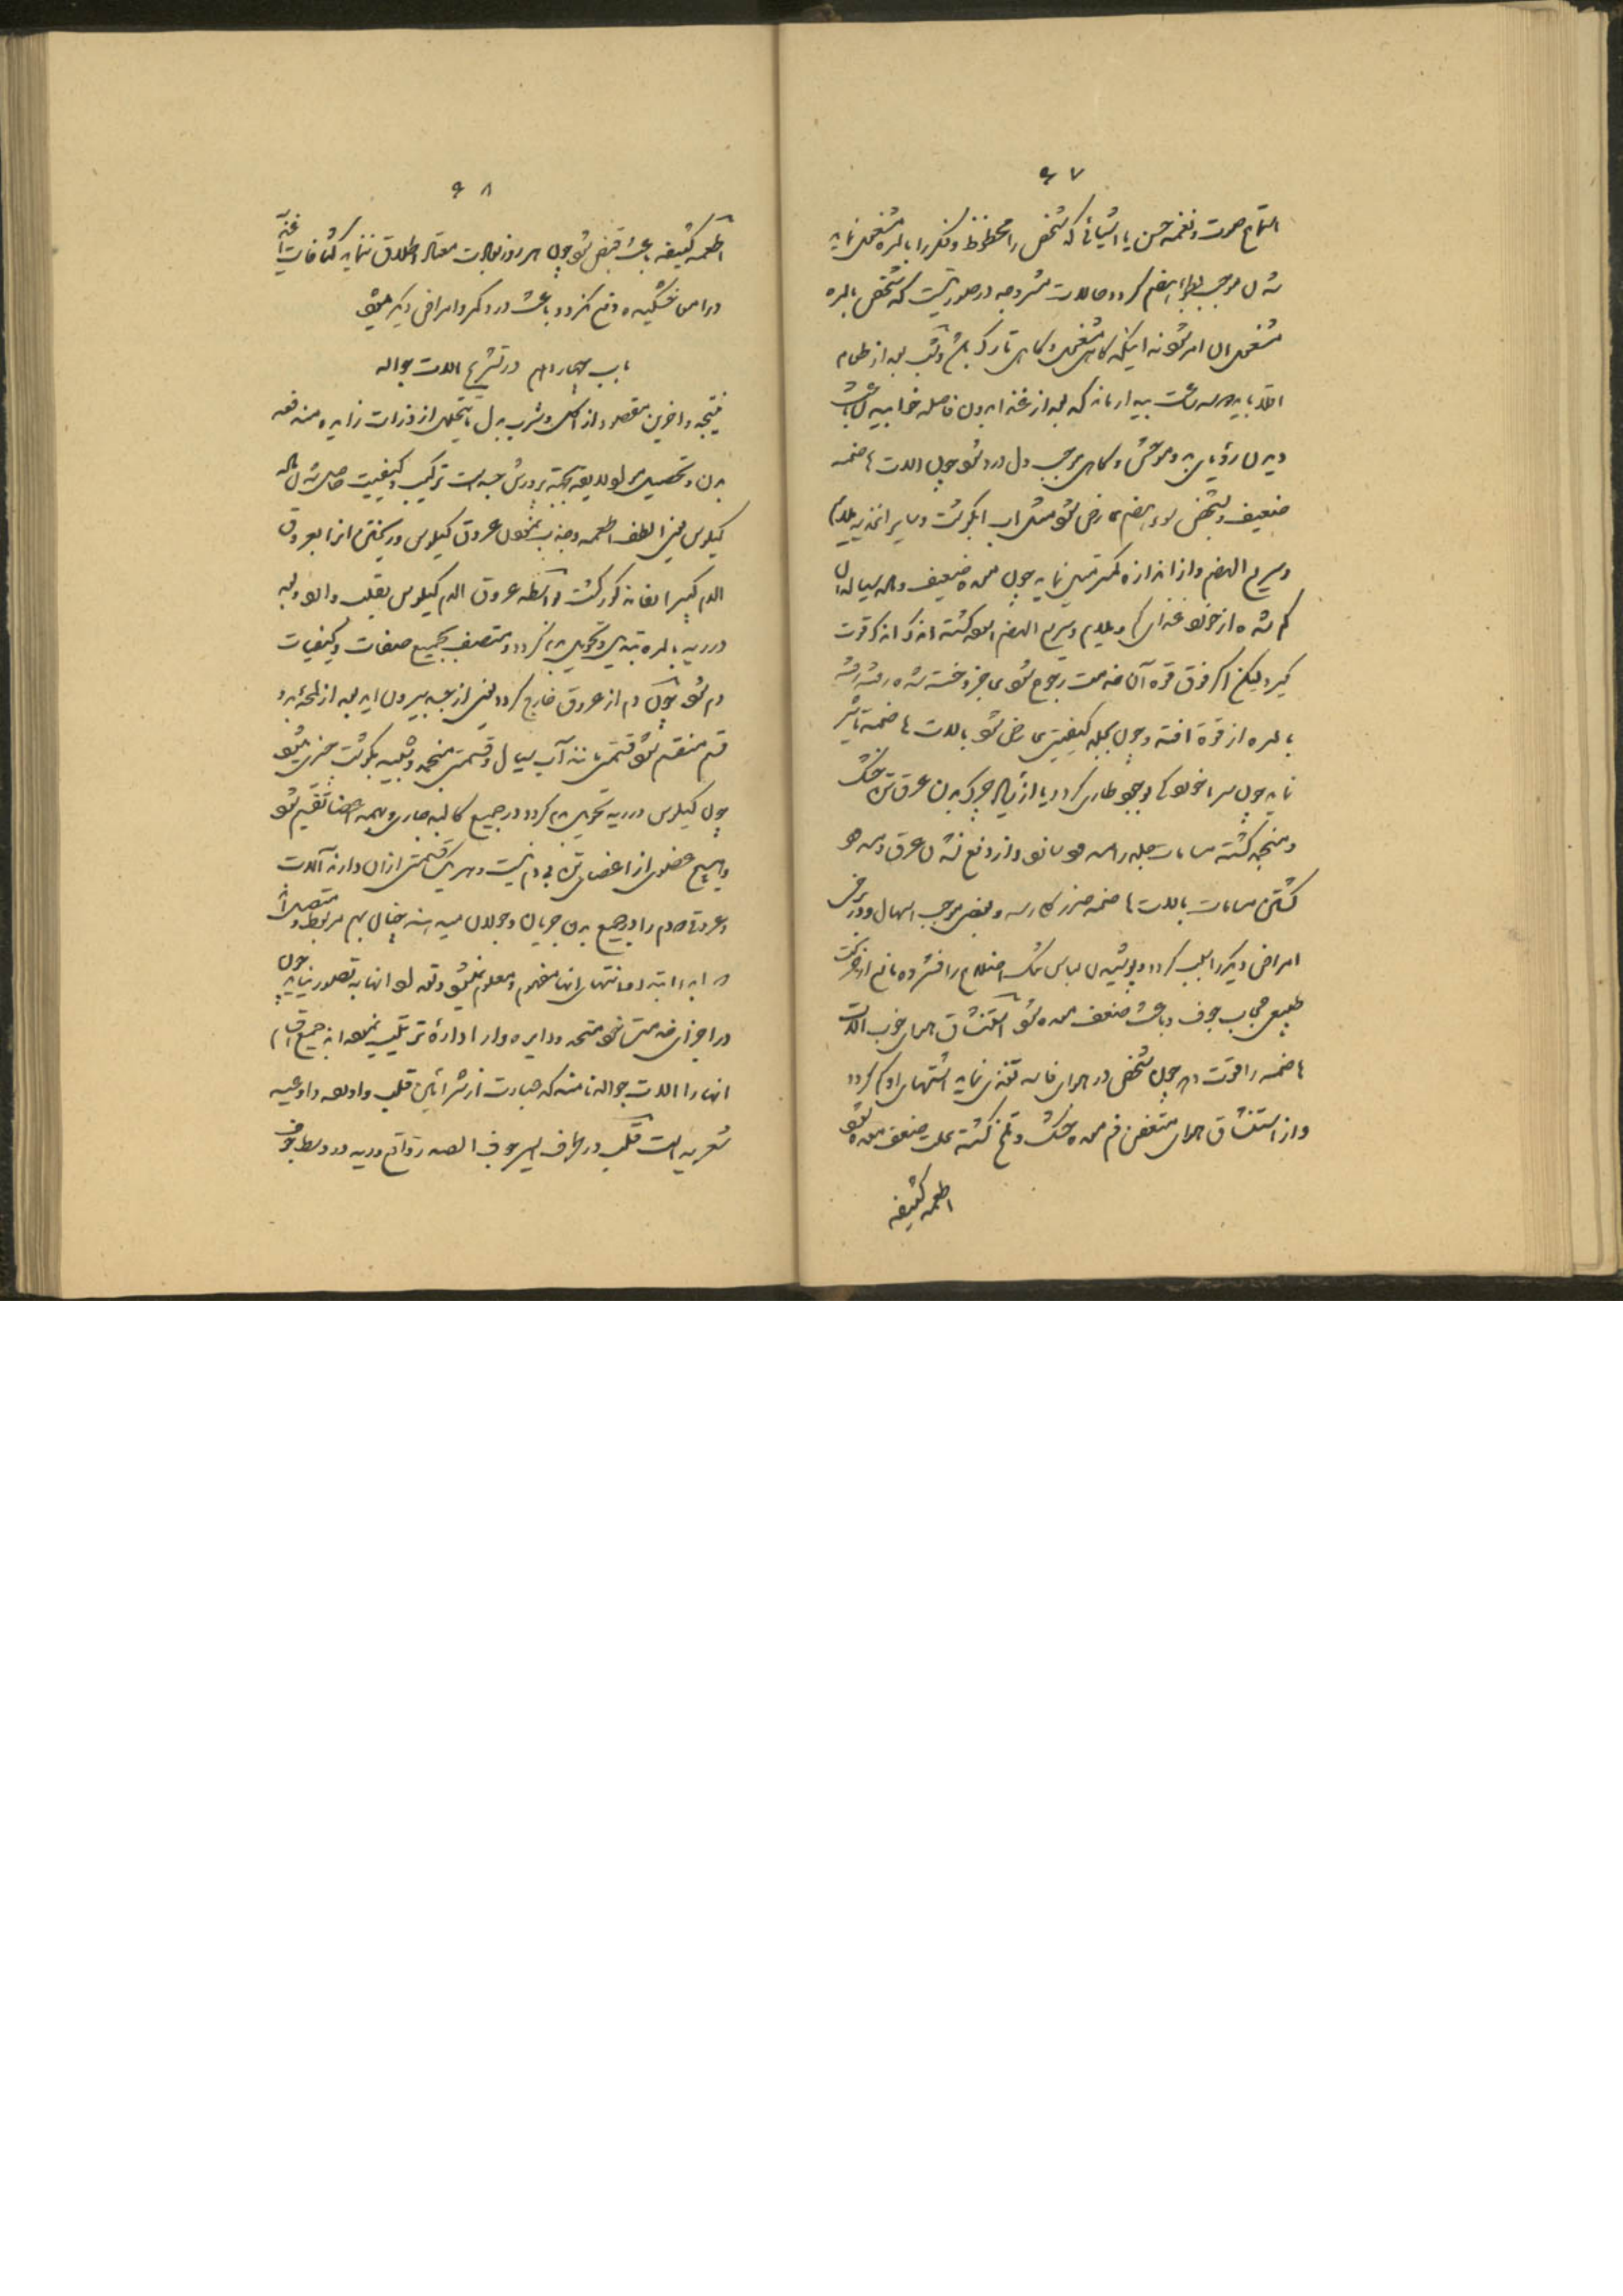 ۹۷
استماع صوت و نغمه حسن یا اشیائی که شخص را محظوظ و فکر را بالمره مشغول نماید
شدن موجب هضم گردد حالات مشروحه در صورتیست که شخص بالمره
مشغول آن امر شود نه اینکه گاهی مشغول و گاهی تارک باشد و شب بعد از طعام
اقلا باید دو سه ساعت بیدار ماند که بعد از غذا بدون فاصله خوابیدن باعث
دیدن رؤیای بد و موحش و گاهی موجب دل درد شود چون آلات هاضمه
ضعیف و شخص سوء هضم عارض شود مثل آب گوشت و سایر اغذیه ملایم
و سریع الهضم و از اندازه کمتر میل نماید چون معده ضعیف و ماده سیاله آن
کم شده از خود غذای ملایم و سریع الهضم آسوده گشته اندک اندک قوت
گیرد لیکن اگر فوق قوه آن خدمت رجوع شود عاجز و خسته شده رفته رفته
بالمره از قوة افتد و چون بجلد کیفیتی عارض شود بآلات هاضمه تأثیر
نماید چون سرما خوردگی بوجود طاری گردد یا از چرک بدن عرق تن خشک
و منجمد گشته مسامات جلد را مسدود نماید و از دفع نشدن عرق و مسدود
گشتن مسامات بآلات هاضمه ضرر کلی رسد و بعضی موجب اسهال و در برخی
امراض دیگر را سبب گردد و پوشیدن لباس تنگ اضلاع را فشرده مانع از حرکت
طبیعی حجاب جوف و باعث ضعف معده شود استنشاق هوای خوب آلات
هاضمه را قوت دهد چون شخص در هوای فاسد تغذی نماید اشتهای او کم گردد
و از استنشاق هوای متعفن فم معده خشک و تلخ گشته علت ضعف معده شود
اطعمه کثیفه
۹۸
اطعمه کثیفه باعث قبض شود چون هر روز بعادت معتاد اطلاق ننماید کثافات اغذیه
در امعا خشکیده دفع نگردد باعث درد کمر و امراض دیگر میشود
باب چهاردهم در تشریح آلات جواله
نتیجه و آخرین مقصود از اکل و شرب بدل ما یتحلل از ذرات زایده مندفعه
بدن و تحصیل مواد لایقه بجهة پرورش جسد است ترکیب و کیفیت حاصل شدن ماده
کیلوس یعنی الطف اطعمه و جذب نمودن عروق کیلوس و ریختن آنرا بعروق
الدم کبیر آنفا مذکور گشت بواسطه عروق الدم کیلوس بقلب وارد و بعد
در ریه بالمره تبدیل و تحویل بدم گردد و متصف بجمیع صفات و کیفیات
دم شود چون دم از عروق خارج گردد یعنی از جسد بیرون آید بعد از لمحه بدو
قسم منقسم شود قسمتی مانند آب سیال و قسمتی منجمد و شبیه بگوشت جزئی میشود
چون کیلوس در ریه تحویل بدم گردد در جمیع کالبد جاری و بهمه اعضا تقسیم شود
و هیچ عضوی از اعضای تن بی دم نیست و هر یک قسمتی از آن دارند آلات
و عروق که دم را در جمیع بدن جریان و جولان میدهند چنان بهم مربوط و متصل اند
که ابدا ابتدا و انتهای آنها مفهوم و معلوم نمیشود و تعداد آنها به تصور نیاید چون
در اجزای خدمت خود متحد و دایره وار ادارۀ ترتیب نموده اند جمیع
آنها را آلات جواله نامند که عبارت از شرائین قلب و اورده و اوعیه
شعریه است قلب در طرف ایسر جوف الصدر واقع و ریه در وسط جوف